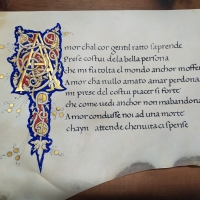 Amor chal cor gentil ratto saprende
Prese costui de la bella persona
che mi fu tolta el mondo anchor moffen
Amor cha nullo amato amar perdona
mi prese del costui piacer si forte
che come vedi anchor non mabandona
Amor condusse noi ad una morte
chayn attende chenuita ci spense